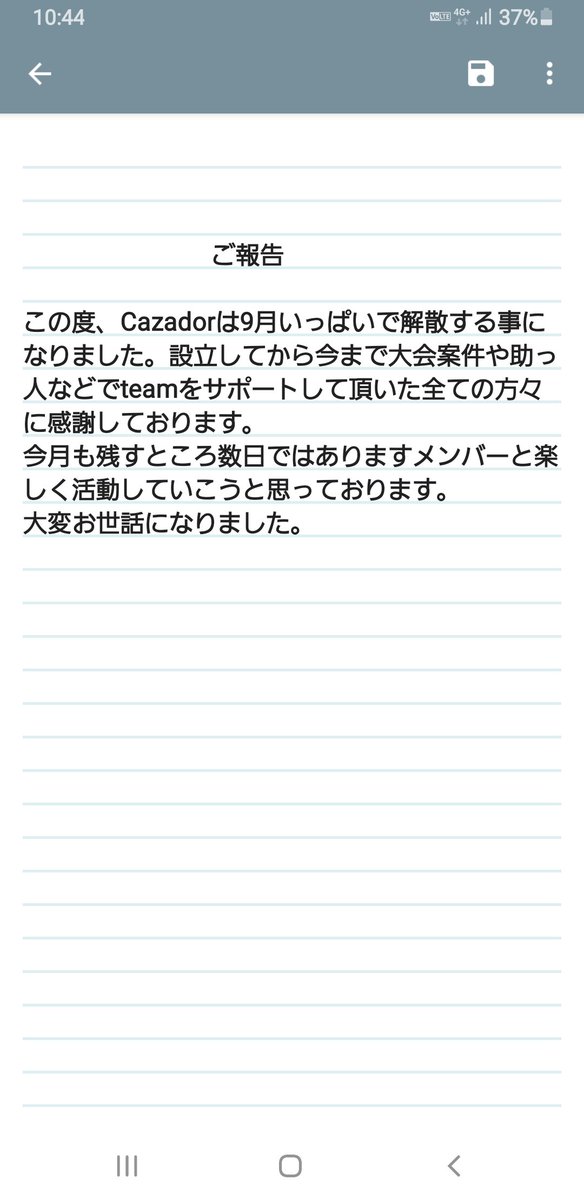 10:44
VoLTE 4G+ 37%
ご報告
この度、Cazadorは9月いっぱいで解散する事に
なりました。設立してから今まで大会案件や助っ
人などでteamをサポートして頂いた全ての方々
に感謝しております。
今月も残すところ数日ではありますメンバーと楽
しく活動していこうと思っております。
大変お世話になりました。